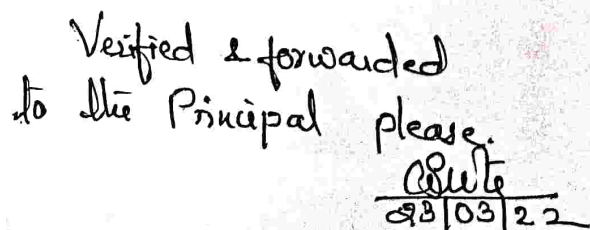 Verified & forwarded
to the Principal please.
23|03|22